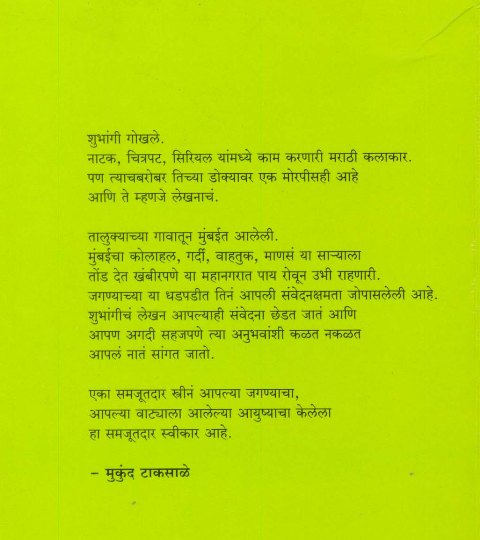 शुभांगी गोखले.
नाटक, चित्रपट, सिरियल यांमध्ये काम करणारी मराठी कलाकार.
पण त्याचबरोबर तिच्या डोक्यावर एक मोरपीसही आहे
आणि ते म्हणजे लेखनाचं.
तालुक्याच्या गावातून मुंबईत आलेली.
मुंबईचा कोलाहल, गर्दी, वाहतुक, माणसं या साऱ्याला
तोंड देत खंबीरपणे या महानगरात पाय रोवून उभी राहणारी.
जगण्याच्या या धडपडीत तिनं आपली संवेदनक्षमता जोपासलेली आहे.
शुभांगीचं लेखन आपल्याही संवेदना छेडत जातं आणि
आपण अगदी सहजपणे त्या अनुभवांशी कळत नकळत
आपलं नातं सांगत जातो.
एका समजूतदार स्त्रीनं आपल्या जगण्याचा,
आपल्या वाट्याला आलेल्या आयुष्याचा केलेला
हा समजूतदार स्वीकार आहे.
– मुकुंद टाकसाळे